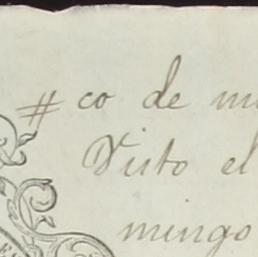 # co de
Visto el
mingo